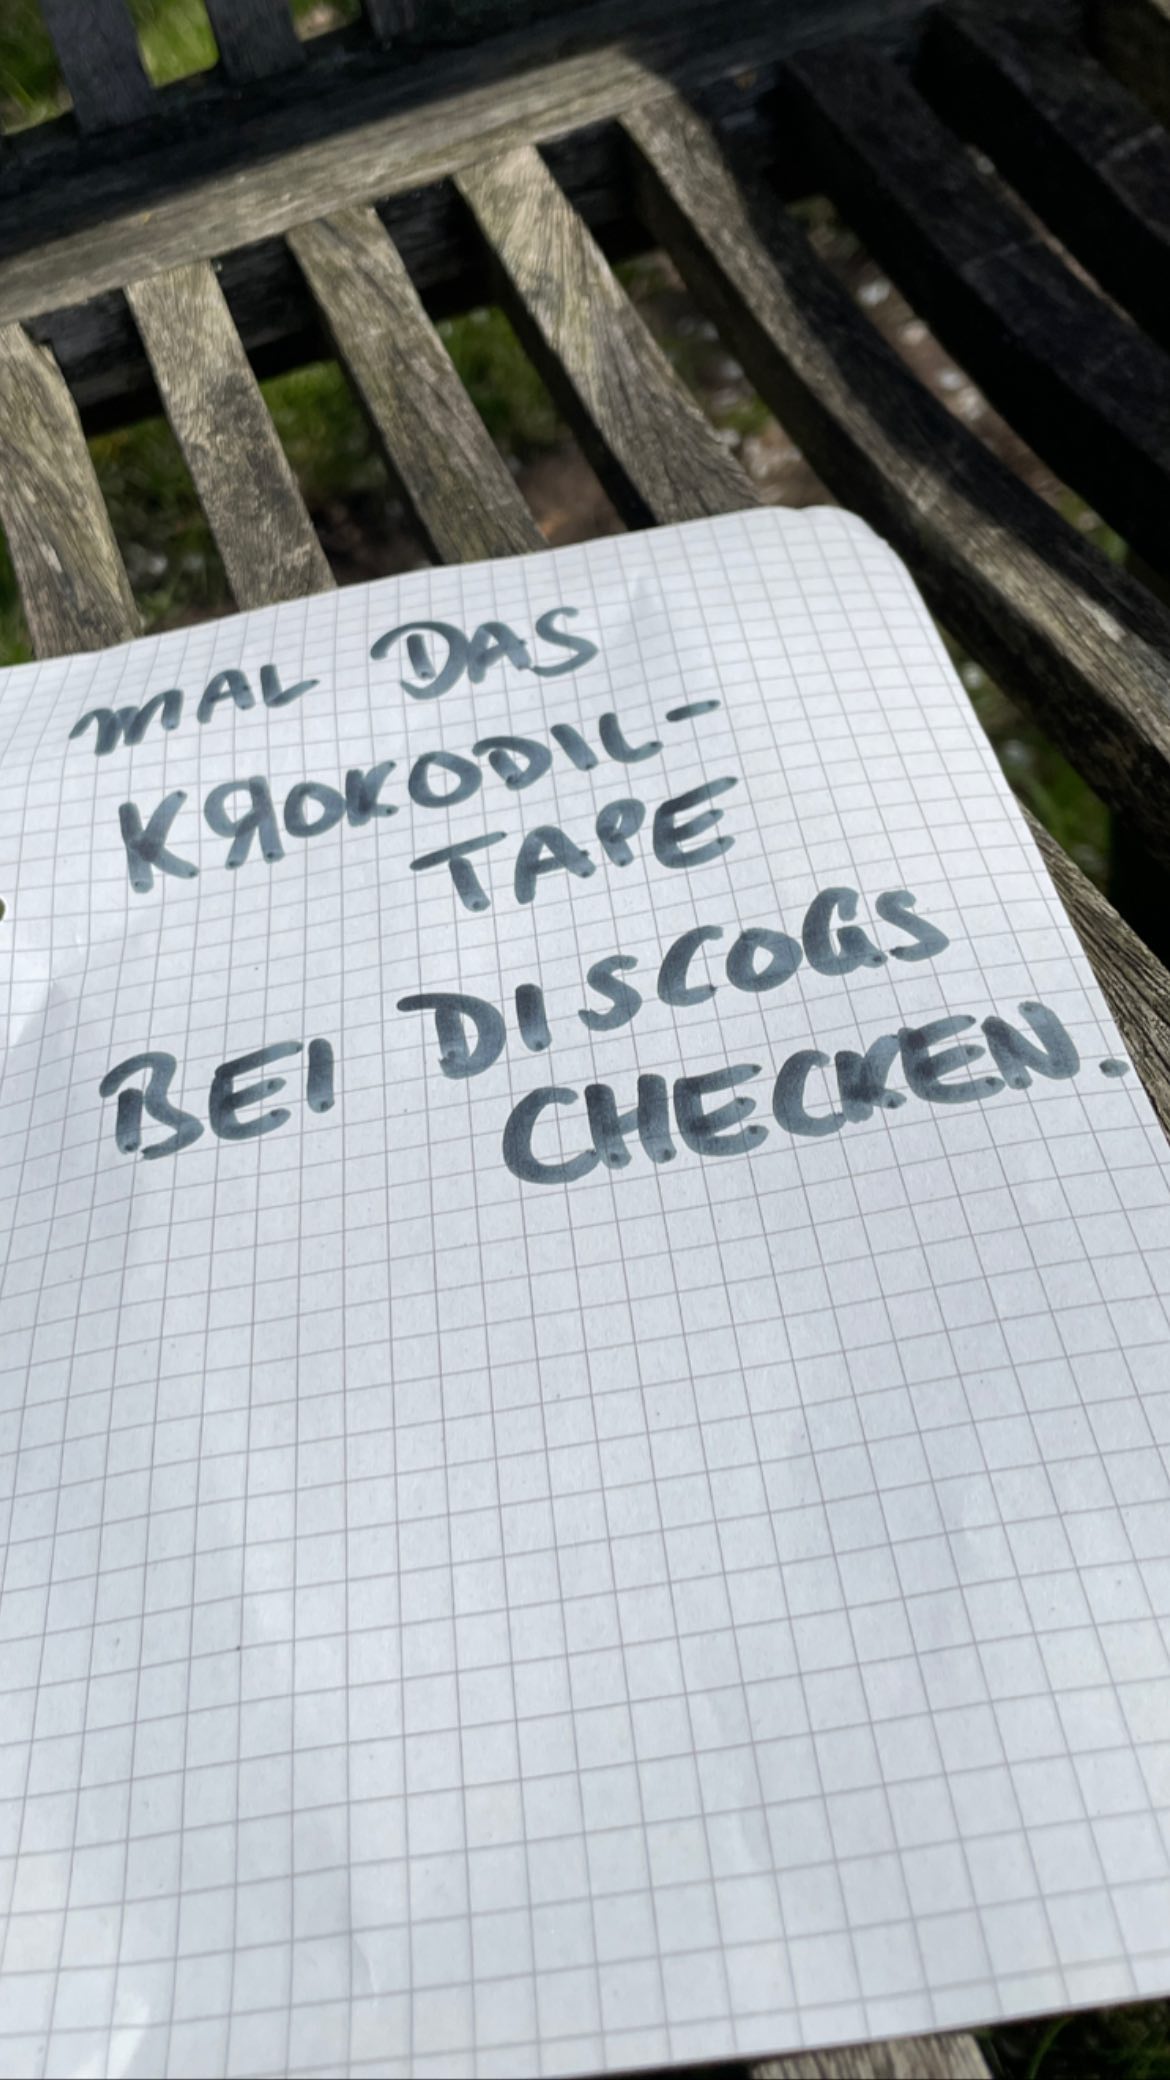 MAL DAS
KROKODIL-
TAPE
BEI DISCOGS
CHECKEN.